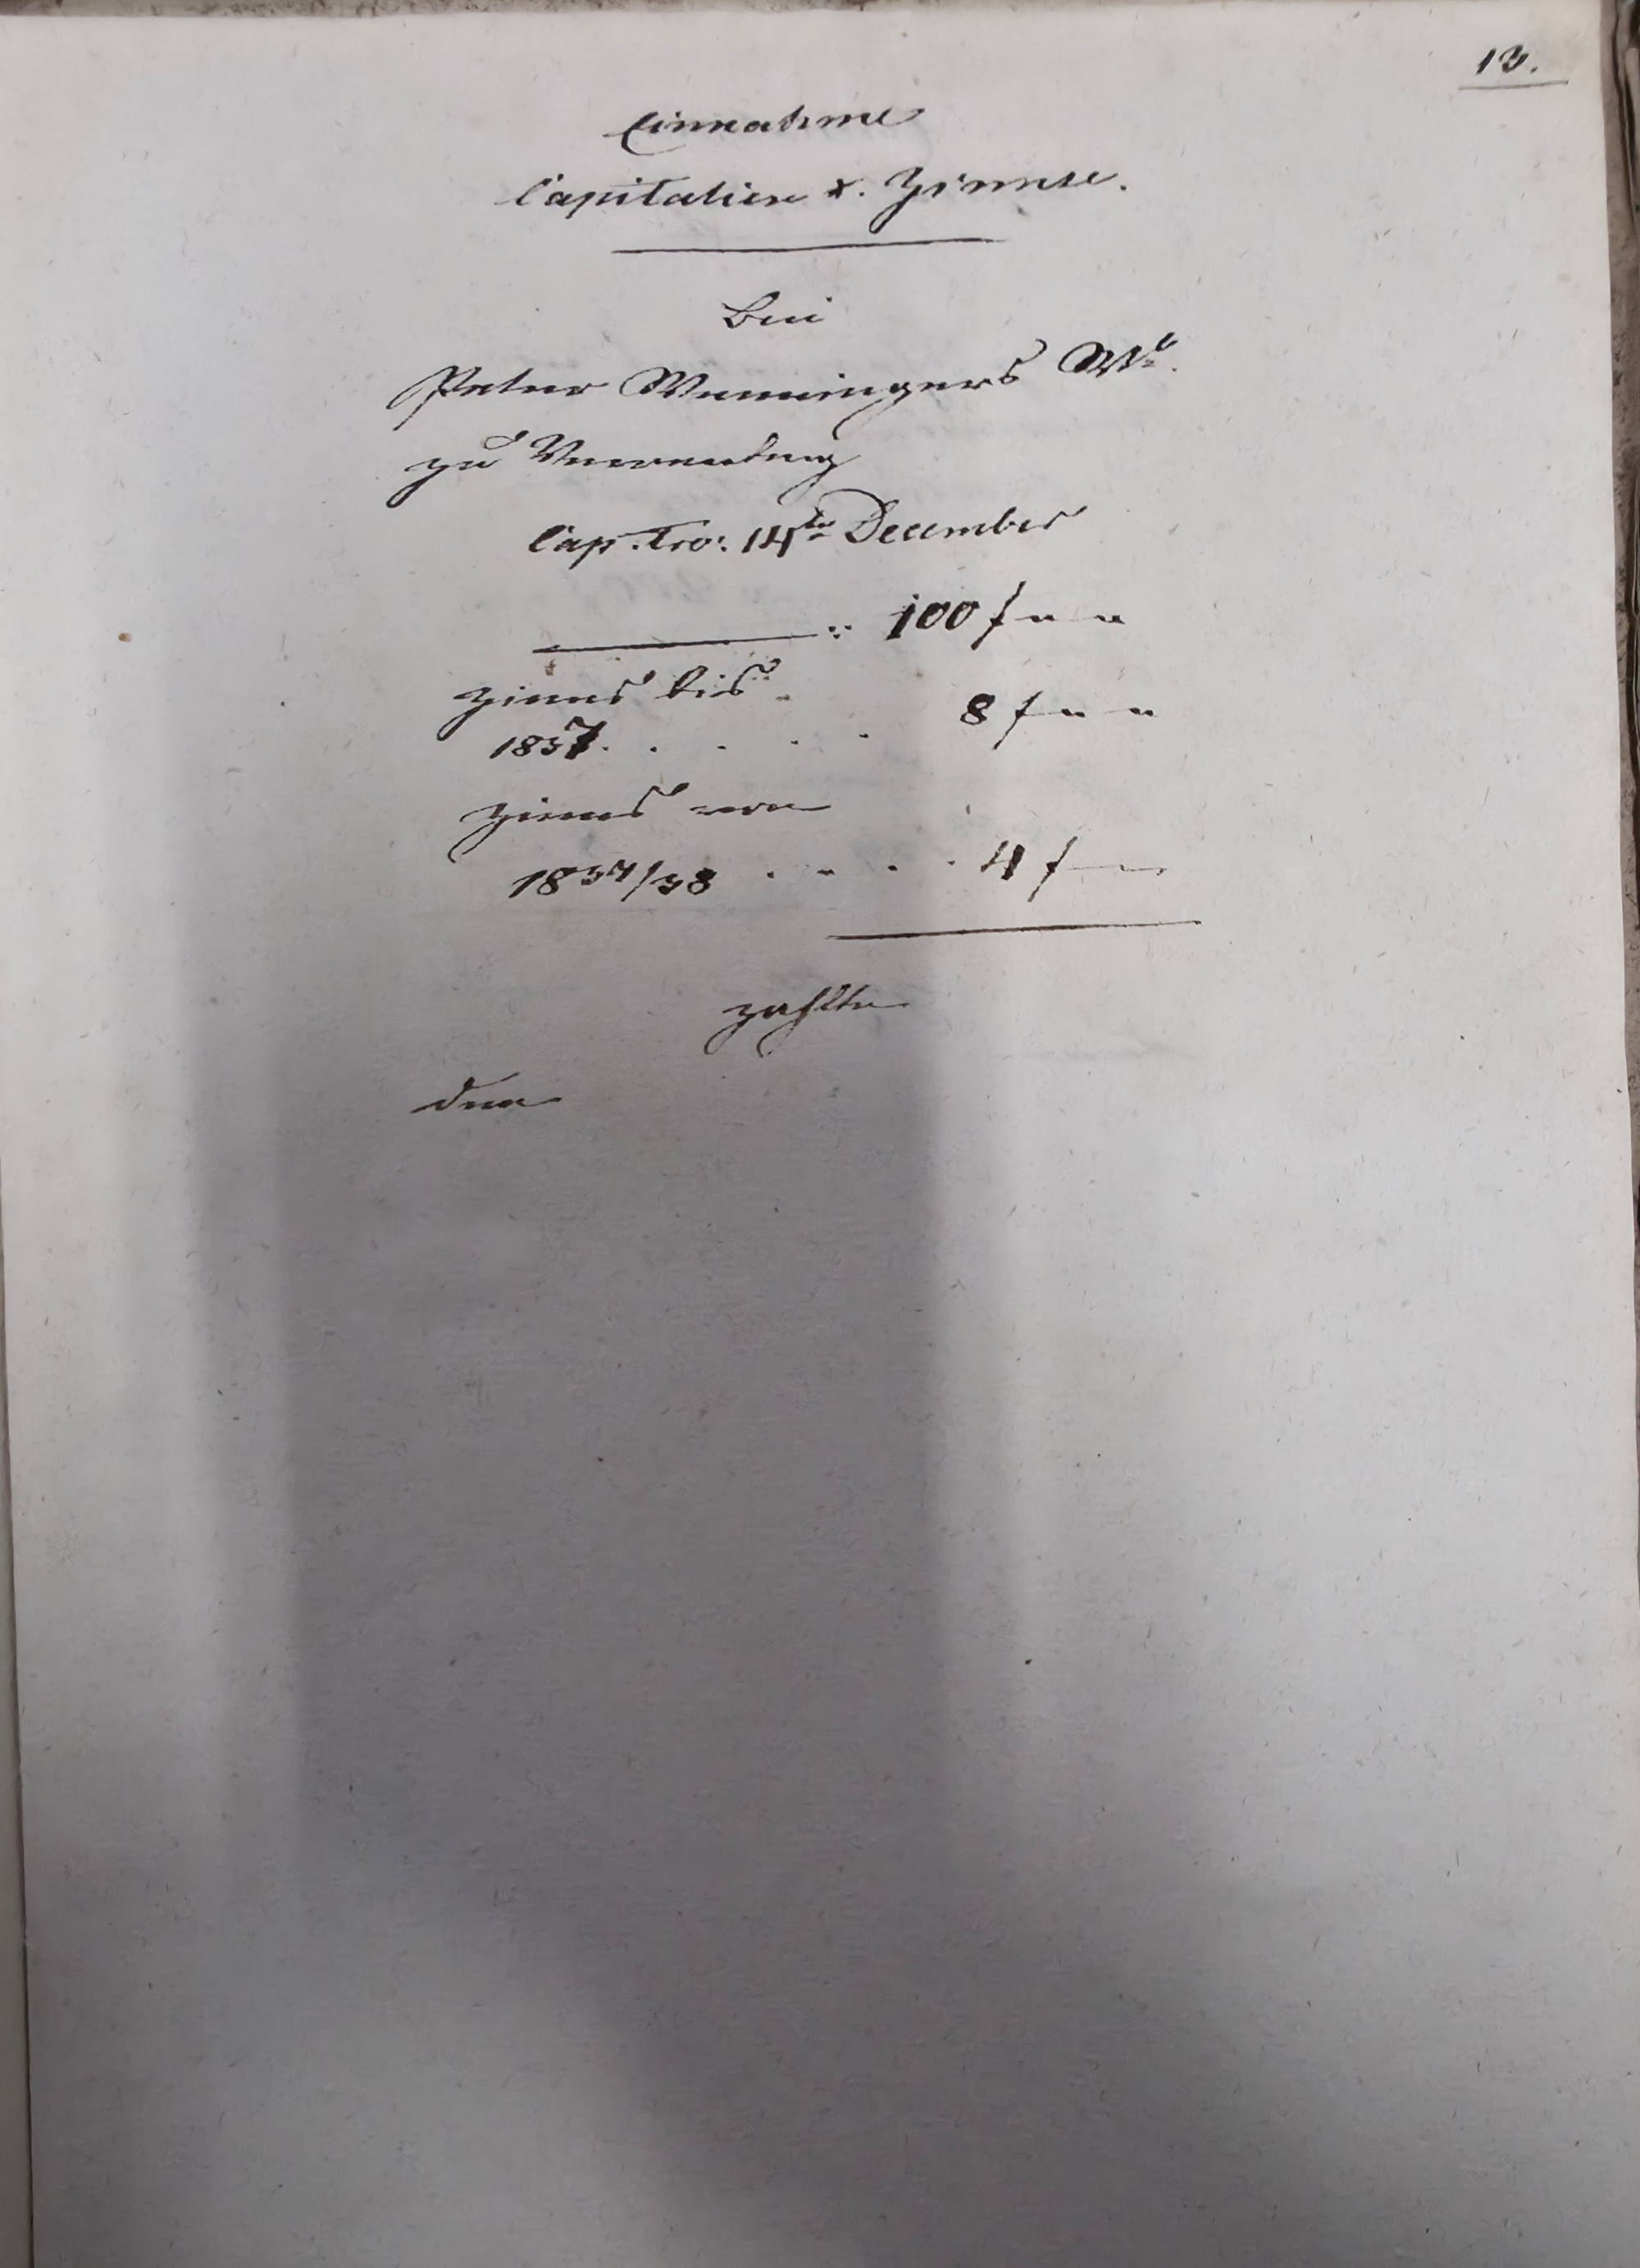 13.
Einnahme
Capitalien u. Zinnse.
Bei
Peter Menningers Wb.
zu
Cap. Tro: 14te December
100 f " "
Zinns bis
1837. . . . . 8 f " "
Zinns von
1837/38 . . . . 4 f
zahlte
den